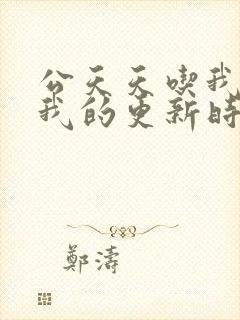 公天天喫我
我的更新時
鄭濤